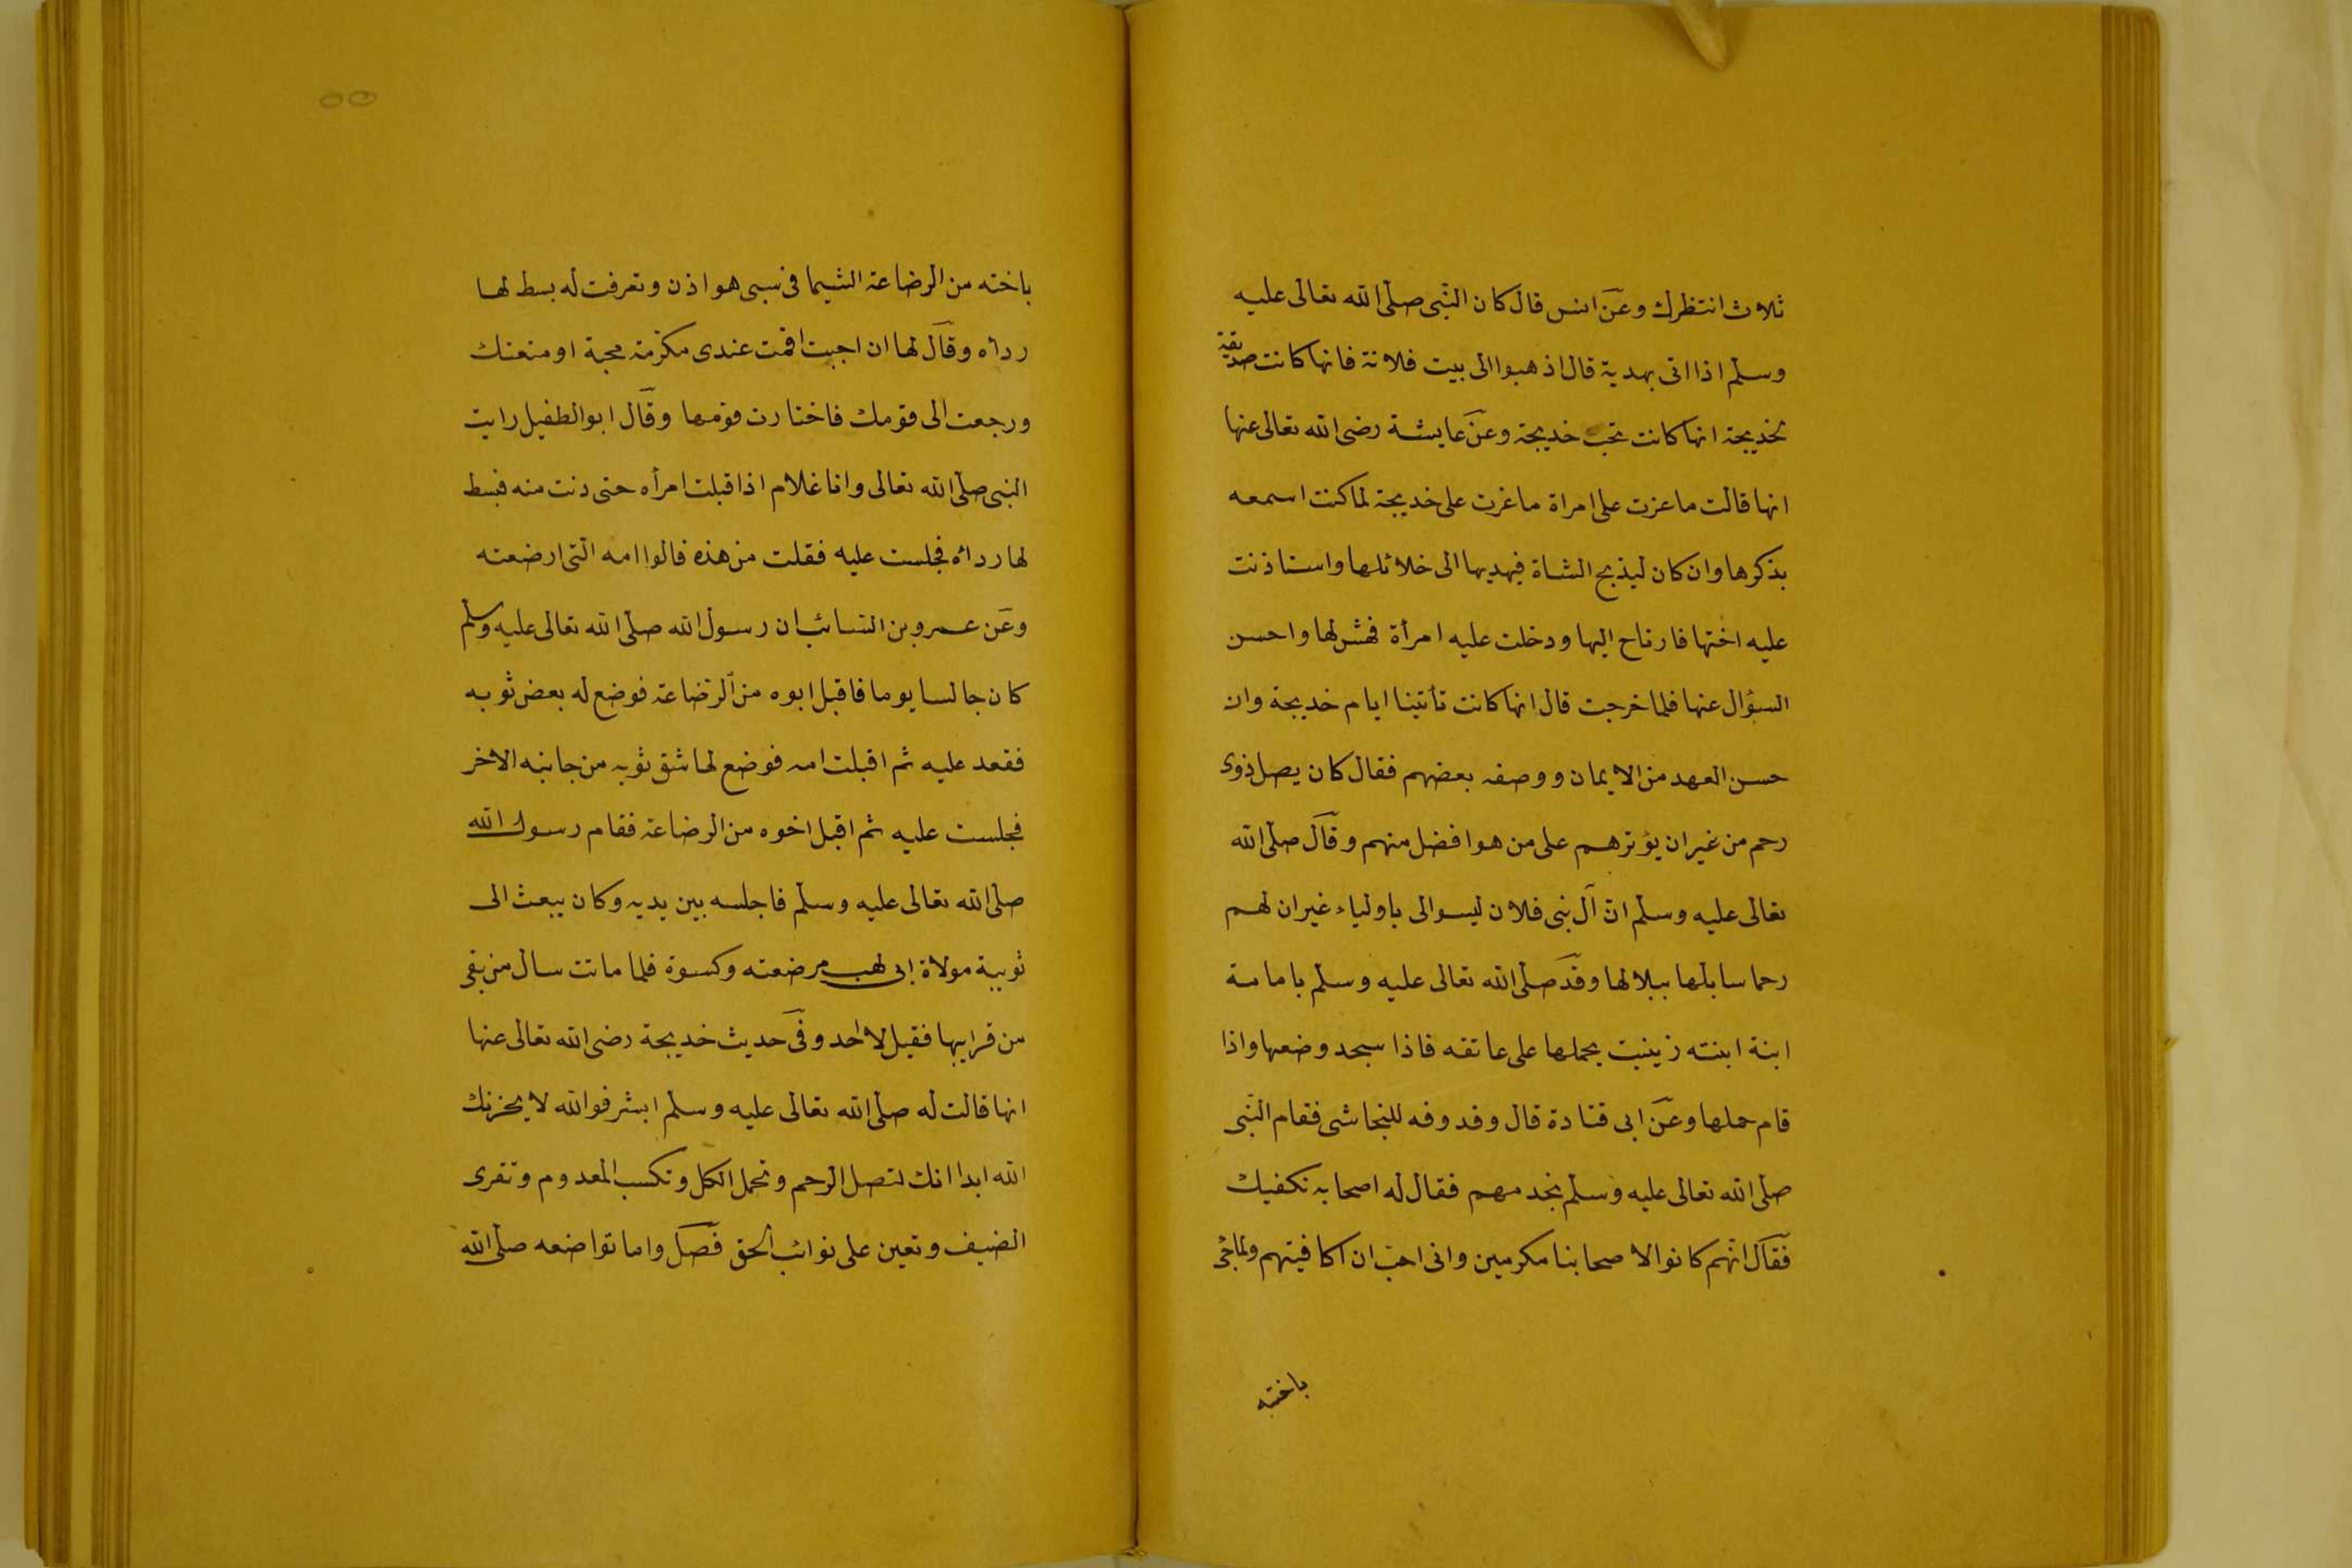 ثلاث انتظرك وعن انس قال كان النبى صلى الله تعالى عليه
وسلم اذا اتى بهدية قال اذهبوا الى بيت فلانة فانها كانت صديقة
لخديجة انها كانت تحب خديجة وعن عايشة رضى الله تعالى عنها
انها قالت ما غرت على امراة ما غرت على خديجة لما كنت اسمعه
يذكرها وان كان ليذبح الشاة فيهديها الى خلائلها واستاذنت
عليه اختها فارتاح اليها ودخلت عليه امرأة فهش لها واحسن
السؤال عنها فلما خرجت قال انها كانت تأتينا ايام خديجة وان
حسن العهد من الايمان ووصفه بعضهم فقال كان يصل ذوى
رحم من غير ان يؤثرهم على من هو افضل منهم وقال صلى الله
تعالى عليه وسلم ان آل بنى فلان ليسوا لى باولياء غير ان لهم
رحما سابلها ببلالها وقد صلى الله تعالى عليه وسلم بامامة
ابنة ابنته زينب يحملها على عاتقه فاذا سجد وضعها واذا
قام حملها وعن ابى قتادة قال وفد وفد للنجاشى فقام النبى
صلى الله تعالى عليه وسلم يخدمهم فقال له اصحابه نكفيك
فقال انهم كانوا لاصحابنا مكرمين وانى احب ان اكافيهم ولما جئ
باخته
باخته من الرضاعة الشيما فى سبى هواذن وتعرفت له بسط لها
رداه وقال لها ان احببت اقمت عندى مكرمة محبة او متعتك
ورجعت الى قومك فاختارت قومها وقال ابو الطفيل رايت
النبى صلى الله تعالى وانا غلام اذ اقبلت امرأه حتى دنت منه فبسط
لها رداه فجلست عليه فقلت من هذه قالوا امه التى ارضعته
وعن عمرو بن السائب ان رسول الله صلى الله تعالى عليه وسلم
كان جالسا يوما فاقبل ابوه من الرضاعة فوضع له بعض ثوبه
فقعد عليه ثم اقبلت امه فوضع لها شق ثوبه من جانبه الاخر
فجلست عليه ثم اقبل اخوه من الرضاعة فقام رسول الله
صلى الله تعالى عليه وسلم فاجلسه بين يديه وكان يبعث الى
ثويبة مولاة ابى لهب مرضعته وكسوة فلما ماتت سال من بقى
من قرابيها فقيل لا احد وفى حديث خديجة رضى الله تعالى عنها
انها قالت له صلى الله تعالى عليه وسلم ابشر فوالله لا يحزنك
الله ابدا انك لتصل الرحم وتحمل الكل وتكسب المعدوم وتقرى
الضيف وتعين على نوائب الحق فصل واما تواضعه صلى الله